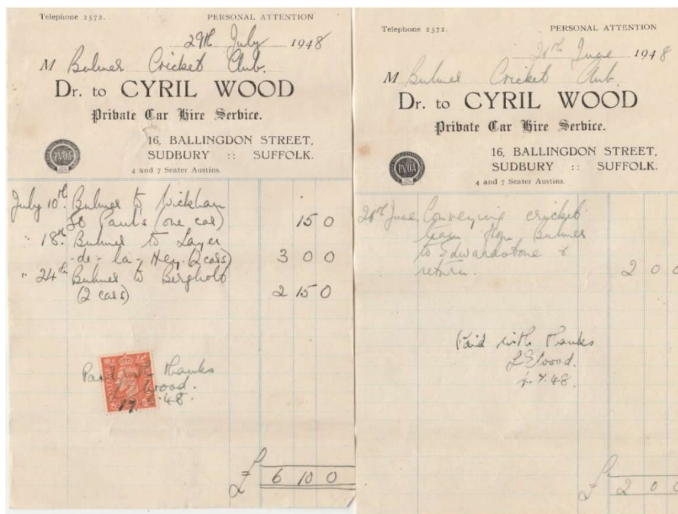 Telephone 2572.
PERSONAL ATTENTION
29th July 1948
M Bulmer Cricket Club.
Dr. to CYRIL WOOD
Private Car Hire Service.
16, BALLINGDON STREET,
SUDBURY :: SUFFOLK.
4 and 7 Seater Austins.
July 10th. Bulmer to Wickham
St Pauls (one car) 15 0
" 18th. Bulmer to Layer
-de-la-Hey. (2 cars) 3 0 0
" 24th Bulmer to Bergholt
(2 cars) 2 15 0
Paid with thanks
Wood.
48.
£ 6 10 0
Telephone 2572.
PERSONAL ATTENTION
28th June 1948
M Bulmer Cricket Club.
Dr. to CYRIL WOOD
Private Car Hire Service.
16, BALLINGDON STREET,
SUDBURY :: SUFFOLK.
4 and 7 Seater Austins.
June Conveying cricket
team from Bulmer
to Edwardstone &
return. 2 0 0
Paid with thanks
Wood.
7.48.
£ 2 0 0